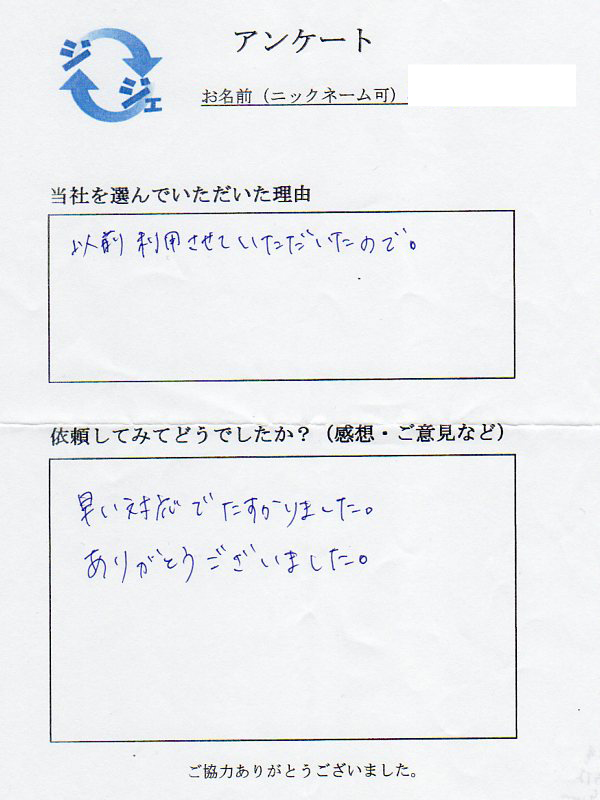 ジジェ
アンケート
お名前（ニックネーム可）
当社を選んでいただいた理由
以前利用させていただいたので。
依頼してみてどうでしたか？（感想・ご意見など）
早い対応でたすかりました。
ありがとうございました。
ご協力ありがとうございました。